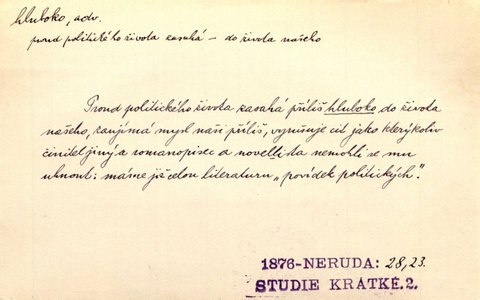 hluboko, adv.
proud politického života zasahá – do života našeho
Proud politického života zasahá příliš hluboko do života
našeho, zaujímá mysl naši příliš, vzrušuje cit jako kterýkoliv
činitel jiný a romanopisec a novellista nemohli se mu
uhnout: máme již celou literaturu „povídek politických“.
1876-NERUDA: 28,23.
STUDIE KRÁTKÉ.2.